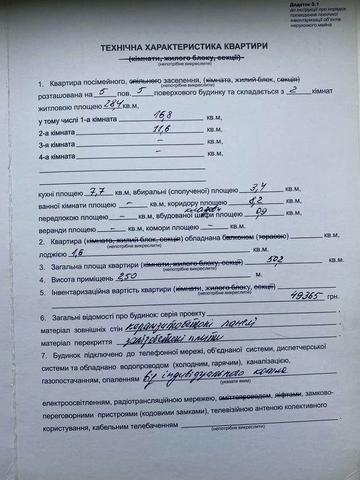 Додаток 3.1
до Інструкції про порядок
проведення технічної
інвентаризації об'єктів
нерухомого майна
ТЕХНІЧНА ХАРАКТЕРИСТИКА КВАРТИРИ
(кімнати, жилого блоку, секції)
(непотрібне викреслити)
1. Квартира посімейного, спільного заселення, (кімната, жилий блок, секція)
(непотрібне викреслити)
розташована на 5 пов. 5 поверхового будинку та складається з 2 кімнат
житловою площею 28,4 кв.м,
у тому числі 1-а кімната 16,8 кв.м,
2-а кімната 11,6 кв.м,
3-я кімната – кв.м,
4-а кімната – кв.м,
кухні площею 7,7 кв.м, вбиральні (сполученої) площею 3,4 кв.м,
ванної кімнати площею – кв.м, коридору площею 8,2 кв.м,
передпокою площею – кв.м, вбудованої шафи площею 0,9 кв.м,
веранди площею – кв.м, комори площею – кв.м.
2. Квартира (кімната, жилий блок, секція) обладнана балконом (терасою) кв.м,
(непотрібне викреслити)
лоджією 1,6 кв.м.
3. Загальна площа квартири (кімнати, жилого блоку, секції) 50,2 кв.м.
(непотрібне викреслити)
4. Висота приміщень 2,50 м.
5. Інвентаризаційна вартість квартири (кімнати, жилого блоку, секції)
(непотрібне викреслити)
49365 грн.
6. Загальні відомості про будинок: серія проекту
матеріал зовнішніх стін керамзитобетонні панелі
матеріал перекриття залізобетонні плити
7. Будинок підключено до телефонної мережі, об'єднаної системи, диспетчерської
системи та обладнано водопроводом (холодним, гарячим), каналізацією,
газопостачанням, опаленням від індивідуального котла
(указати яким)
електроосвітленням, радіотрансляційною мережею, сміттєпроводом, ліфтами, замково-
переговорними пристроями (кодовими замками), телевізійною антеною колективного
користування, кабельним телебаченням